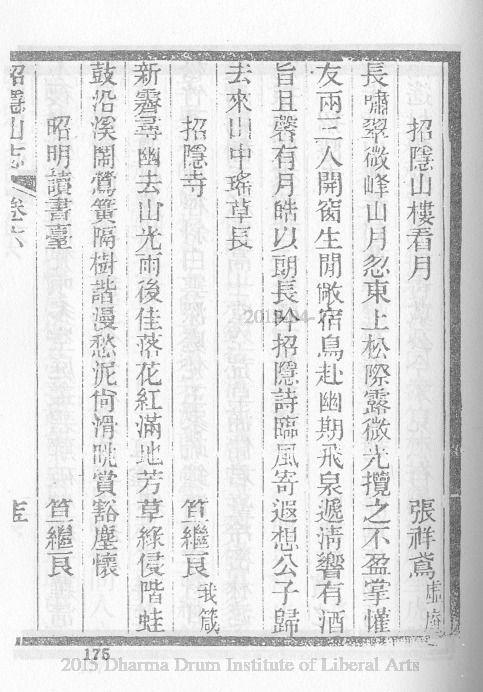 招隱山樓看月 張祥鳶虛庵
長嘯翠微峰山月忽東上松際露微光攬之不盈掌懽
友兩三人開窗生閒敞宿鳥赴幽期飛泉遞淸響有酒
旨且馨有月皓以朗長吟招隱詩臨風寄遐想公子歸
去來山中瑤草長
招隱寺 笪繼良我箴
新霽尋幽去山光雨後佳落花紅滿地芳草綠侵階蛙
鼓沿溪鬧鶯簧隔樹諧漫愁泥尙滑晀賞豁塵懷
昭明讀書臺 笪繼良
招隱山志 卷六
175
2015 Dharma Drum Institute of Liberal Arts